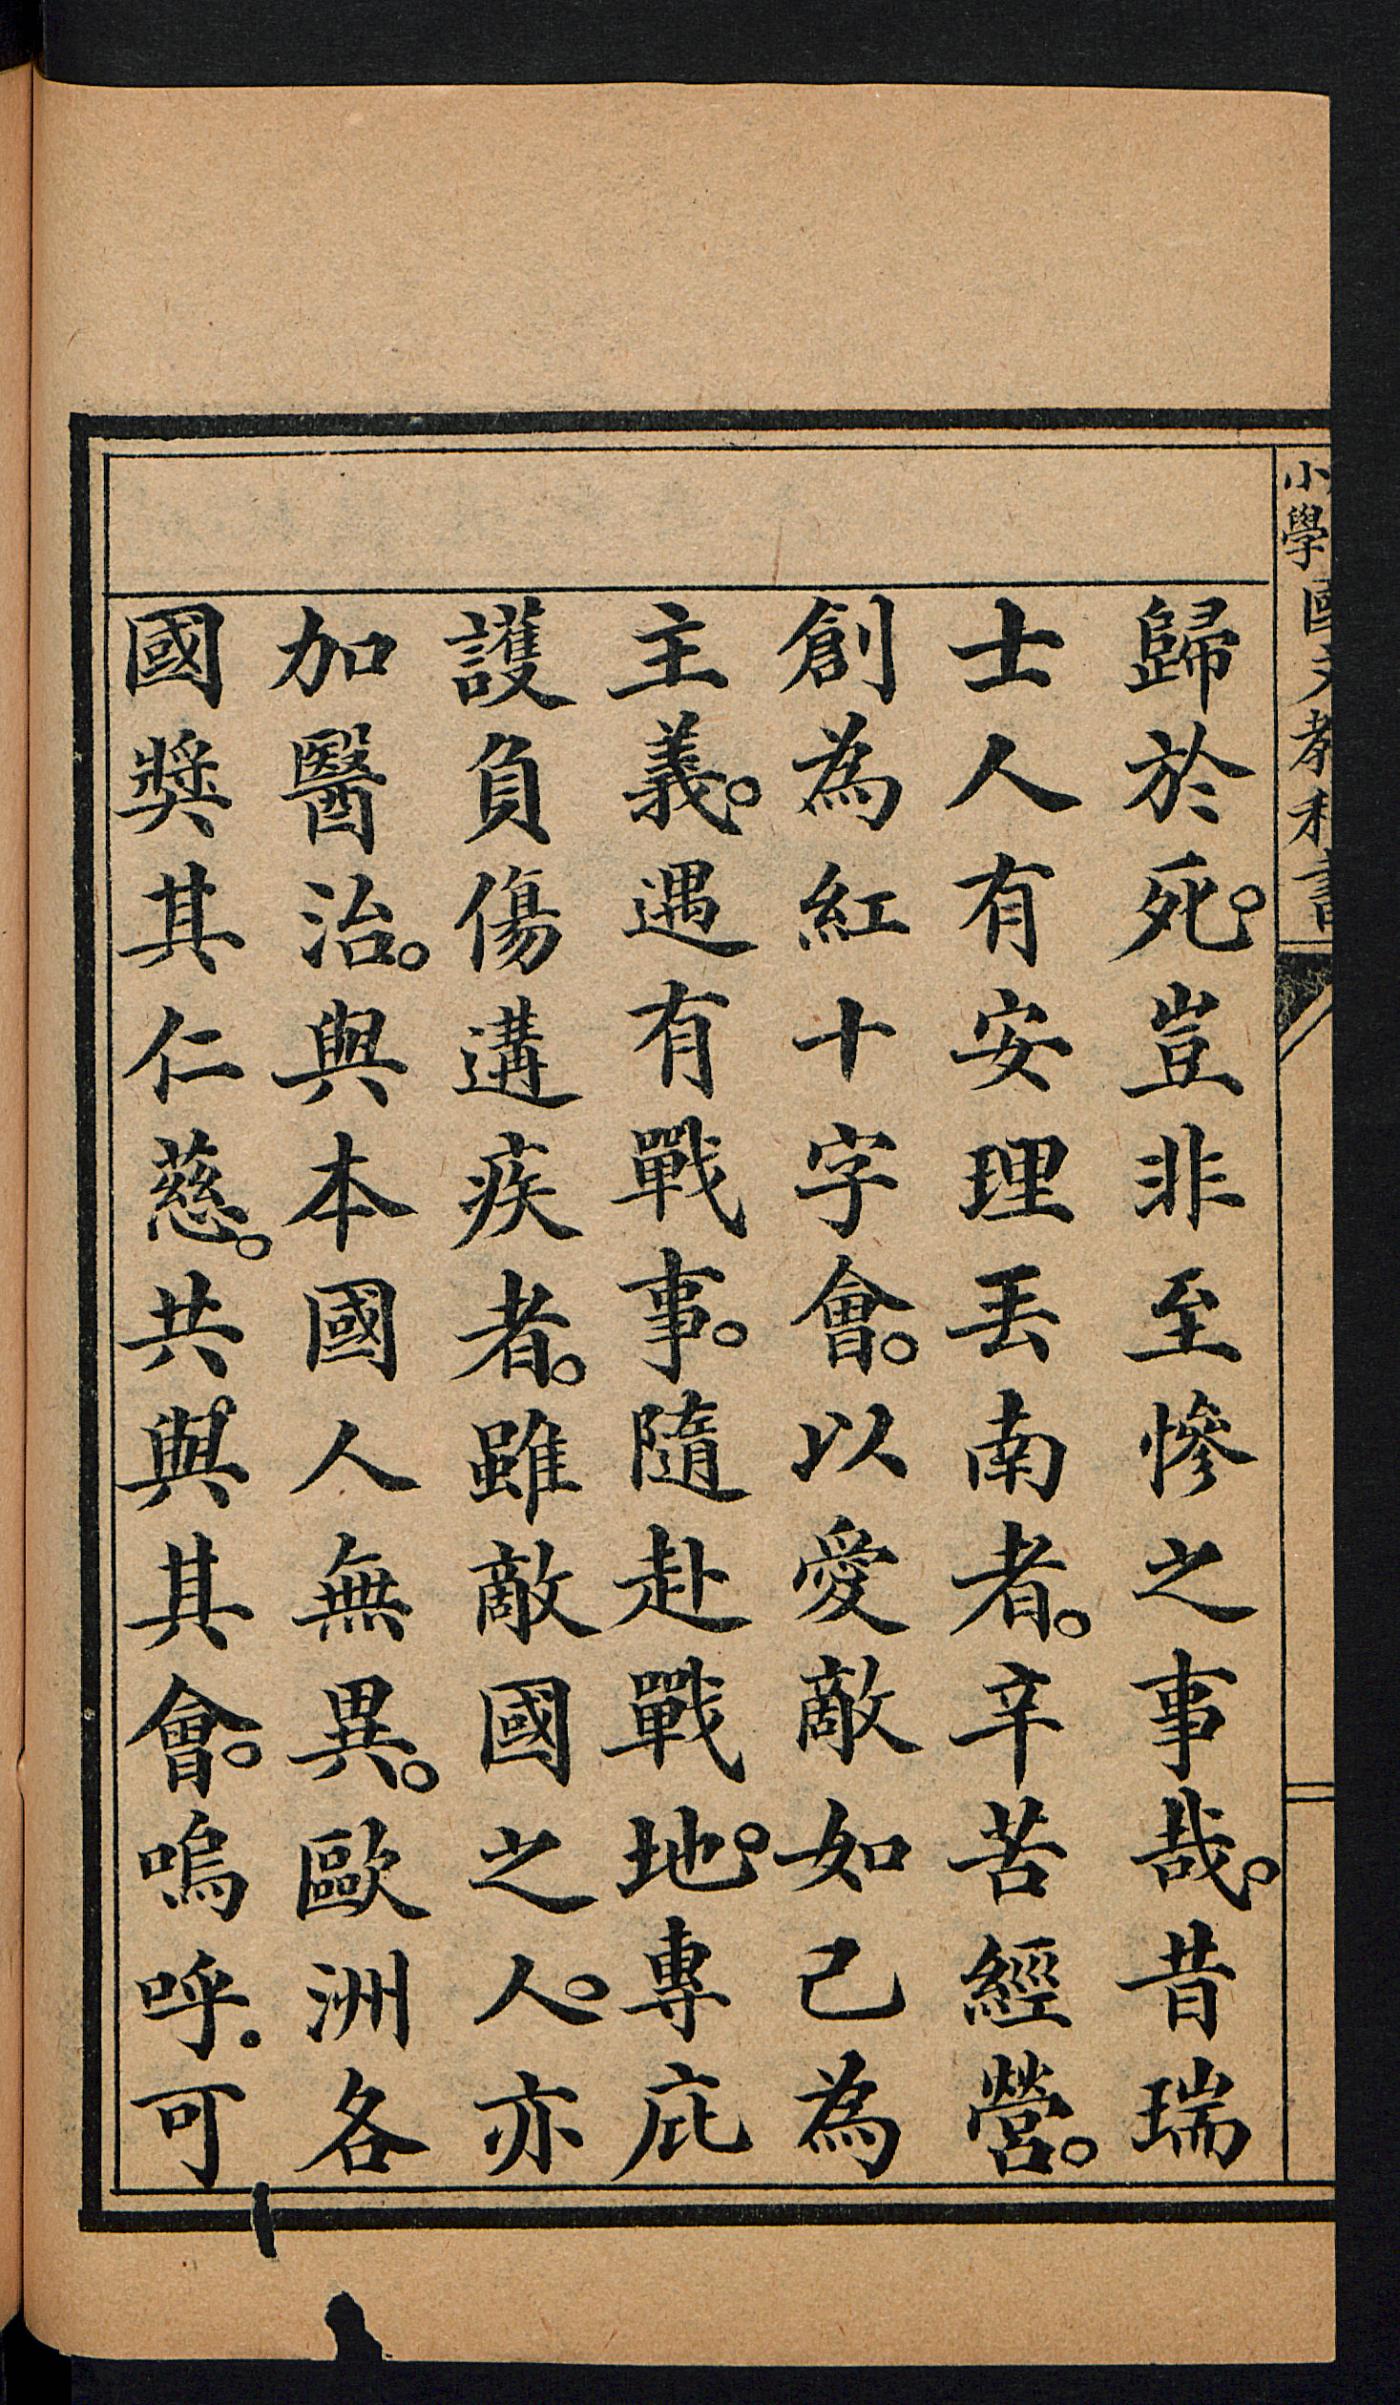 小學國文教科書
歸於死。豈非至慘之事哉。昔瑞
士人有安理丟南者。辛苦經營。
創為紅十字會。以愛敵如己為
主義。遇有戰事。隨赴戰地。專庇
護負傷遘疾者。雖敵國之人。亦
加醫治。與本國人無異。歐洲各
國奬其仁慈。共與其會。嗚呼.可